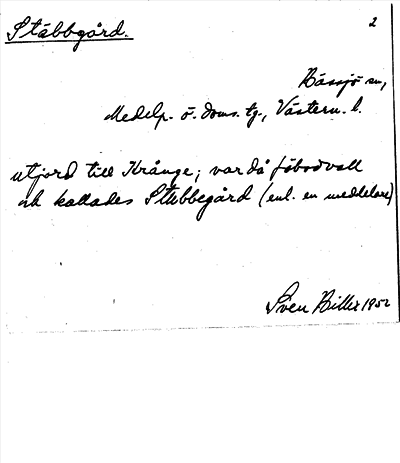 Stäbbgård. 2
Råssjö sn,
Medelp. ö. doms. tg., Västern. l.
utjord till Krånge; var då fäbodvall
och kallades Stubbegård (enl. en meddelare)
Sven Biller 1952